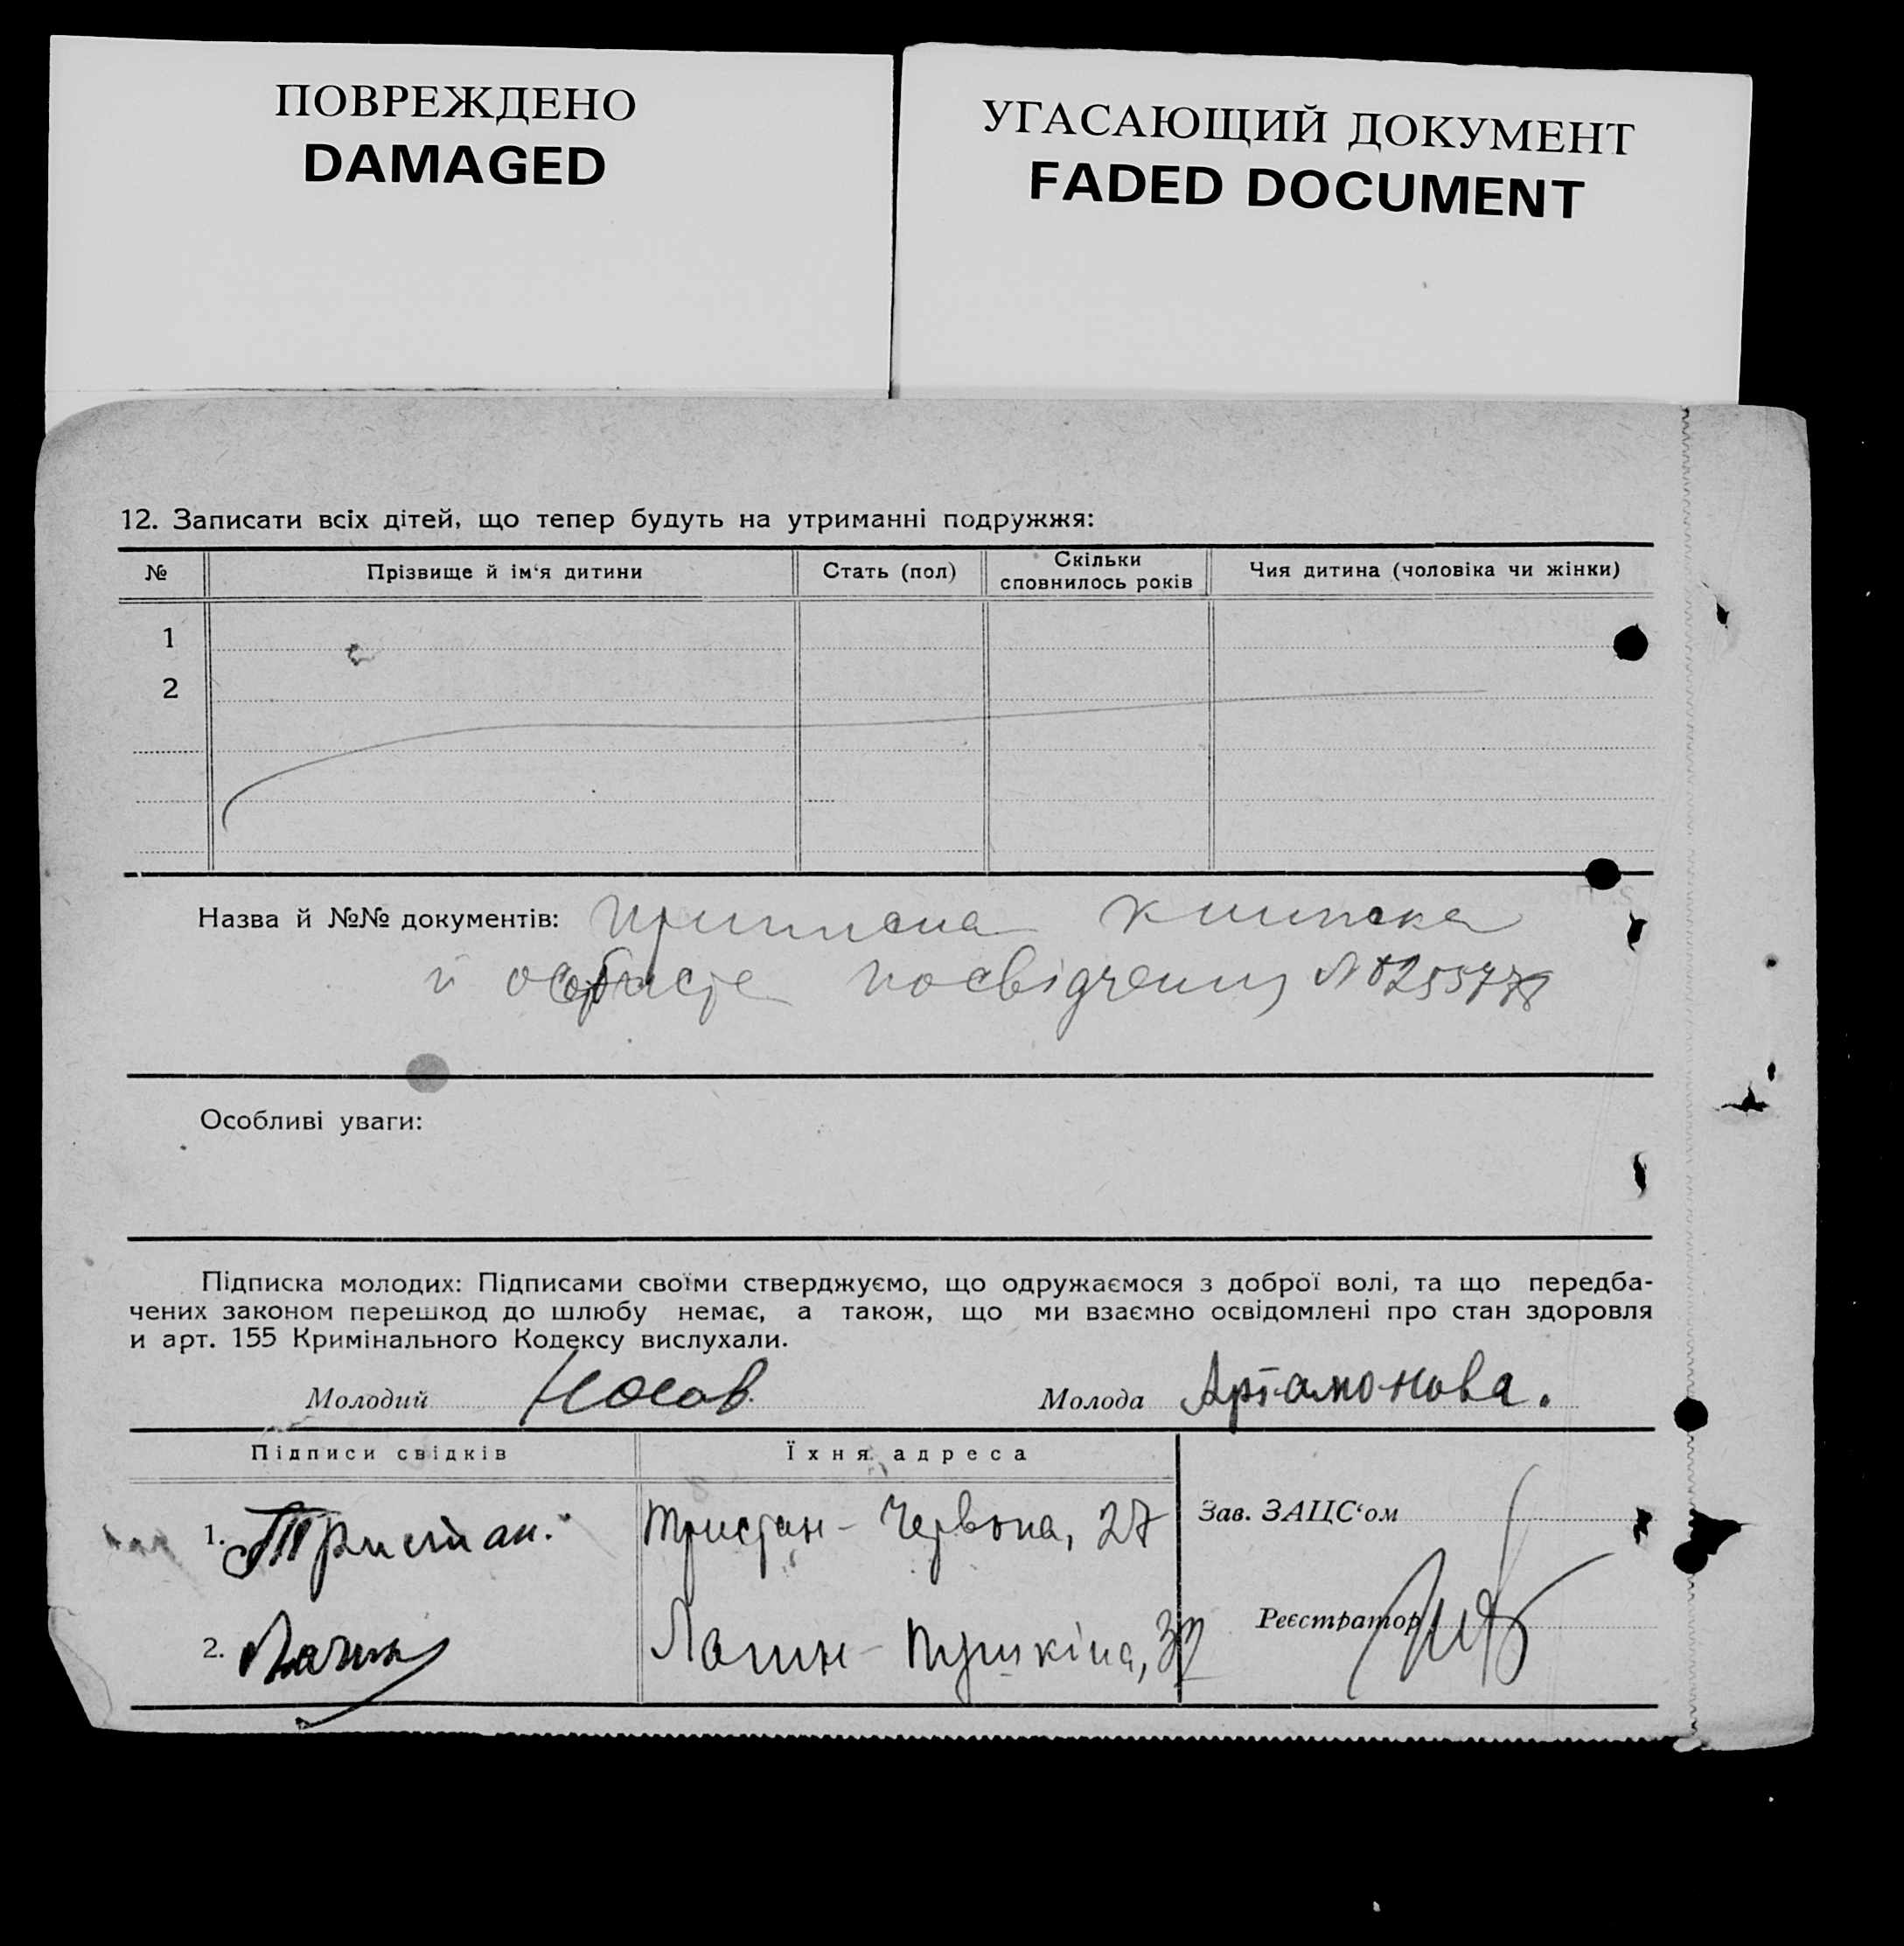 ПОВРЕЖДЕНО
DAMAGED
УГАСАЮЩИЙ ДОКУМЕНТ
FADED DOCUMENT
12. Записати всіх дітей, що тепер будуть на утриманні подружжя:
№ Прізвище й ім‘я дитини Стать (пол) Скільки сповнилось років Чия дитина (чоловіка чи жінки)
1
2
Назва й №№ документів: приписна книжка
й особисте посвідчення №
Особливі уваги:
Підписка молодих: Підписами своїми стверджуємо, що одружаємося з доброї волі, та що передба-
чених законом перешкод до шлюбу немає, а також, що ми взаємно освідомлені про стан здоровля
и арт. 155 Кримінального Кодексу вислухали.
Молодий Носов Молода Артамонова.
Підписи свідків Їхня адреса
1. Тристан. Тристан - Червона, 27 Зав. ЗАЦС‘ом
2. Пушкіна, Реєстратор